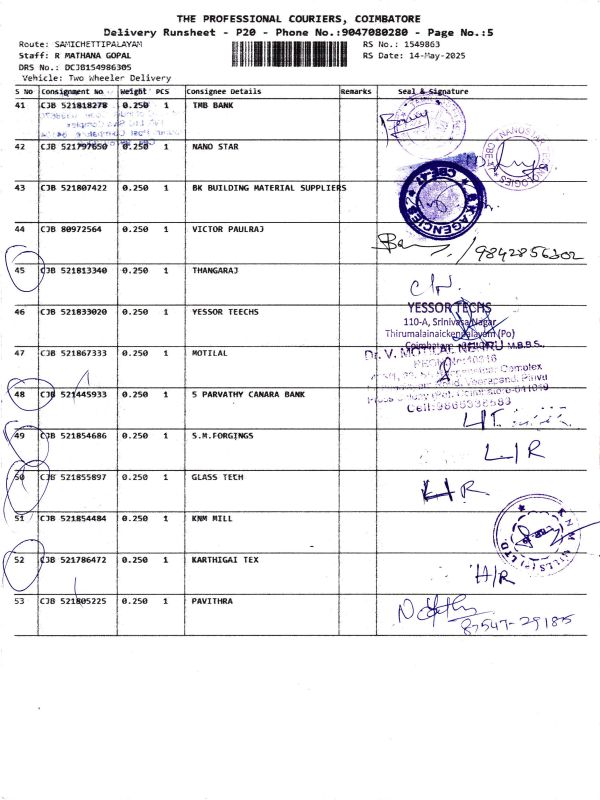 THE PROFESSIONAL COURIERS, COIMBATORE
Delivery Runsheet - P20 - Phone No.:9047080280 - Page No.:5
Route: SAMICHETTIPALAYAM
Staff: R MATHANA GOPAL
DRS No.: DCJB154986305
Vehicle: Two Wheeler Delivery
RS No.: 1549863
RS Date: 14-May-2025
S No Consignment No Weight PCS Consignee Details Remarks Seal & Signature
41 CJB 521818278 0.250 1 TMB BANK
42 CJB 521797650 0.250 1 NANO STAR
NANOSTAR TECHNOLOGIES
43 CJB 521807422 0.250 1 BK BUILDING MATERIAL SUPPLIERS
AGENCIES
44 CJB 80972564 0.250 1 VICTOR PAULRAJ
9842856302
45 CJB 521813340 0.250 1 THANGARAJ
46 CJB 521833020 0.250 1 YESSOR TEECHS
YESSOR TECHS
110-A, Srinivasa Nagar
Thirumalainaickenpalayam (Po)
47 CJB 521867333 0.250 1 MOTILAL
Dr. V. MOTILAL NEHRU M.B.B.S.,
Complex
48 CJB 521445933 0.250 1 S PARVATHY CANARA BANK
49 CJB 521854686 0.250 1 S.M.FORGINGS
L/R
50 CJB 521855897 0.250 1 GLASS TECH
L/R
51 CJB 521854484 0.250 1 KNM MILL
K N M MILLS (P) LTD.
52 CJB 521786472 0.250 1 KARTHIGAI TEX
H/R
53 CJB 521805225 0.250 1 PAVITHRA
87547-29185